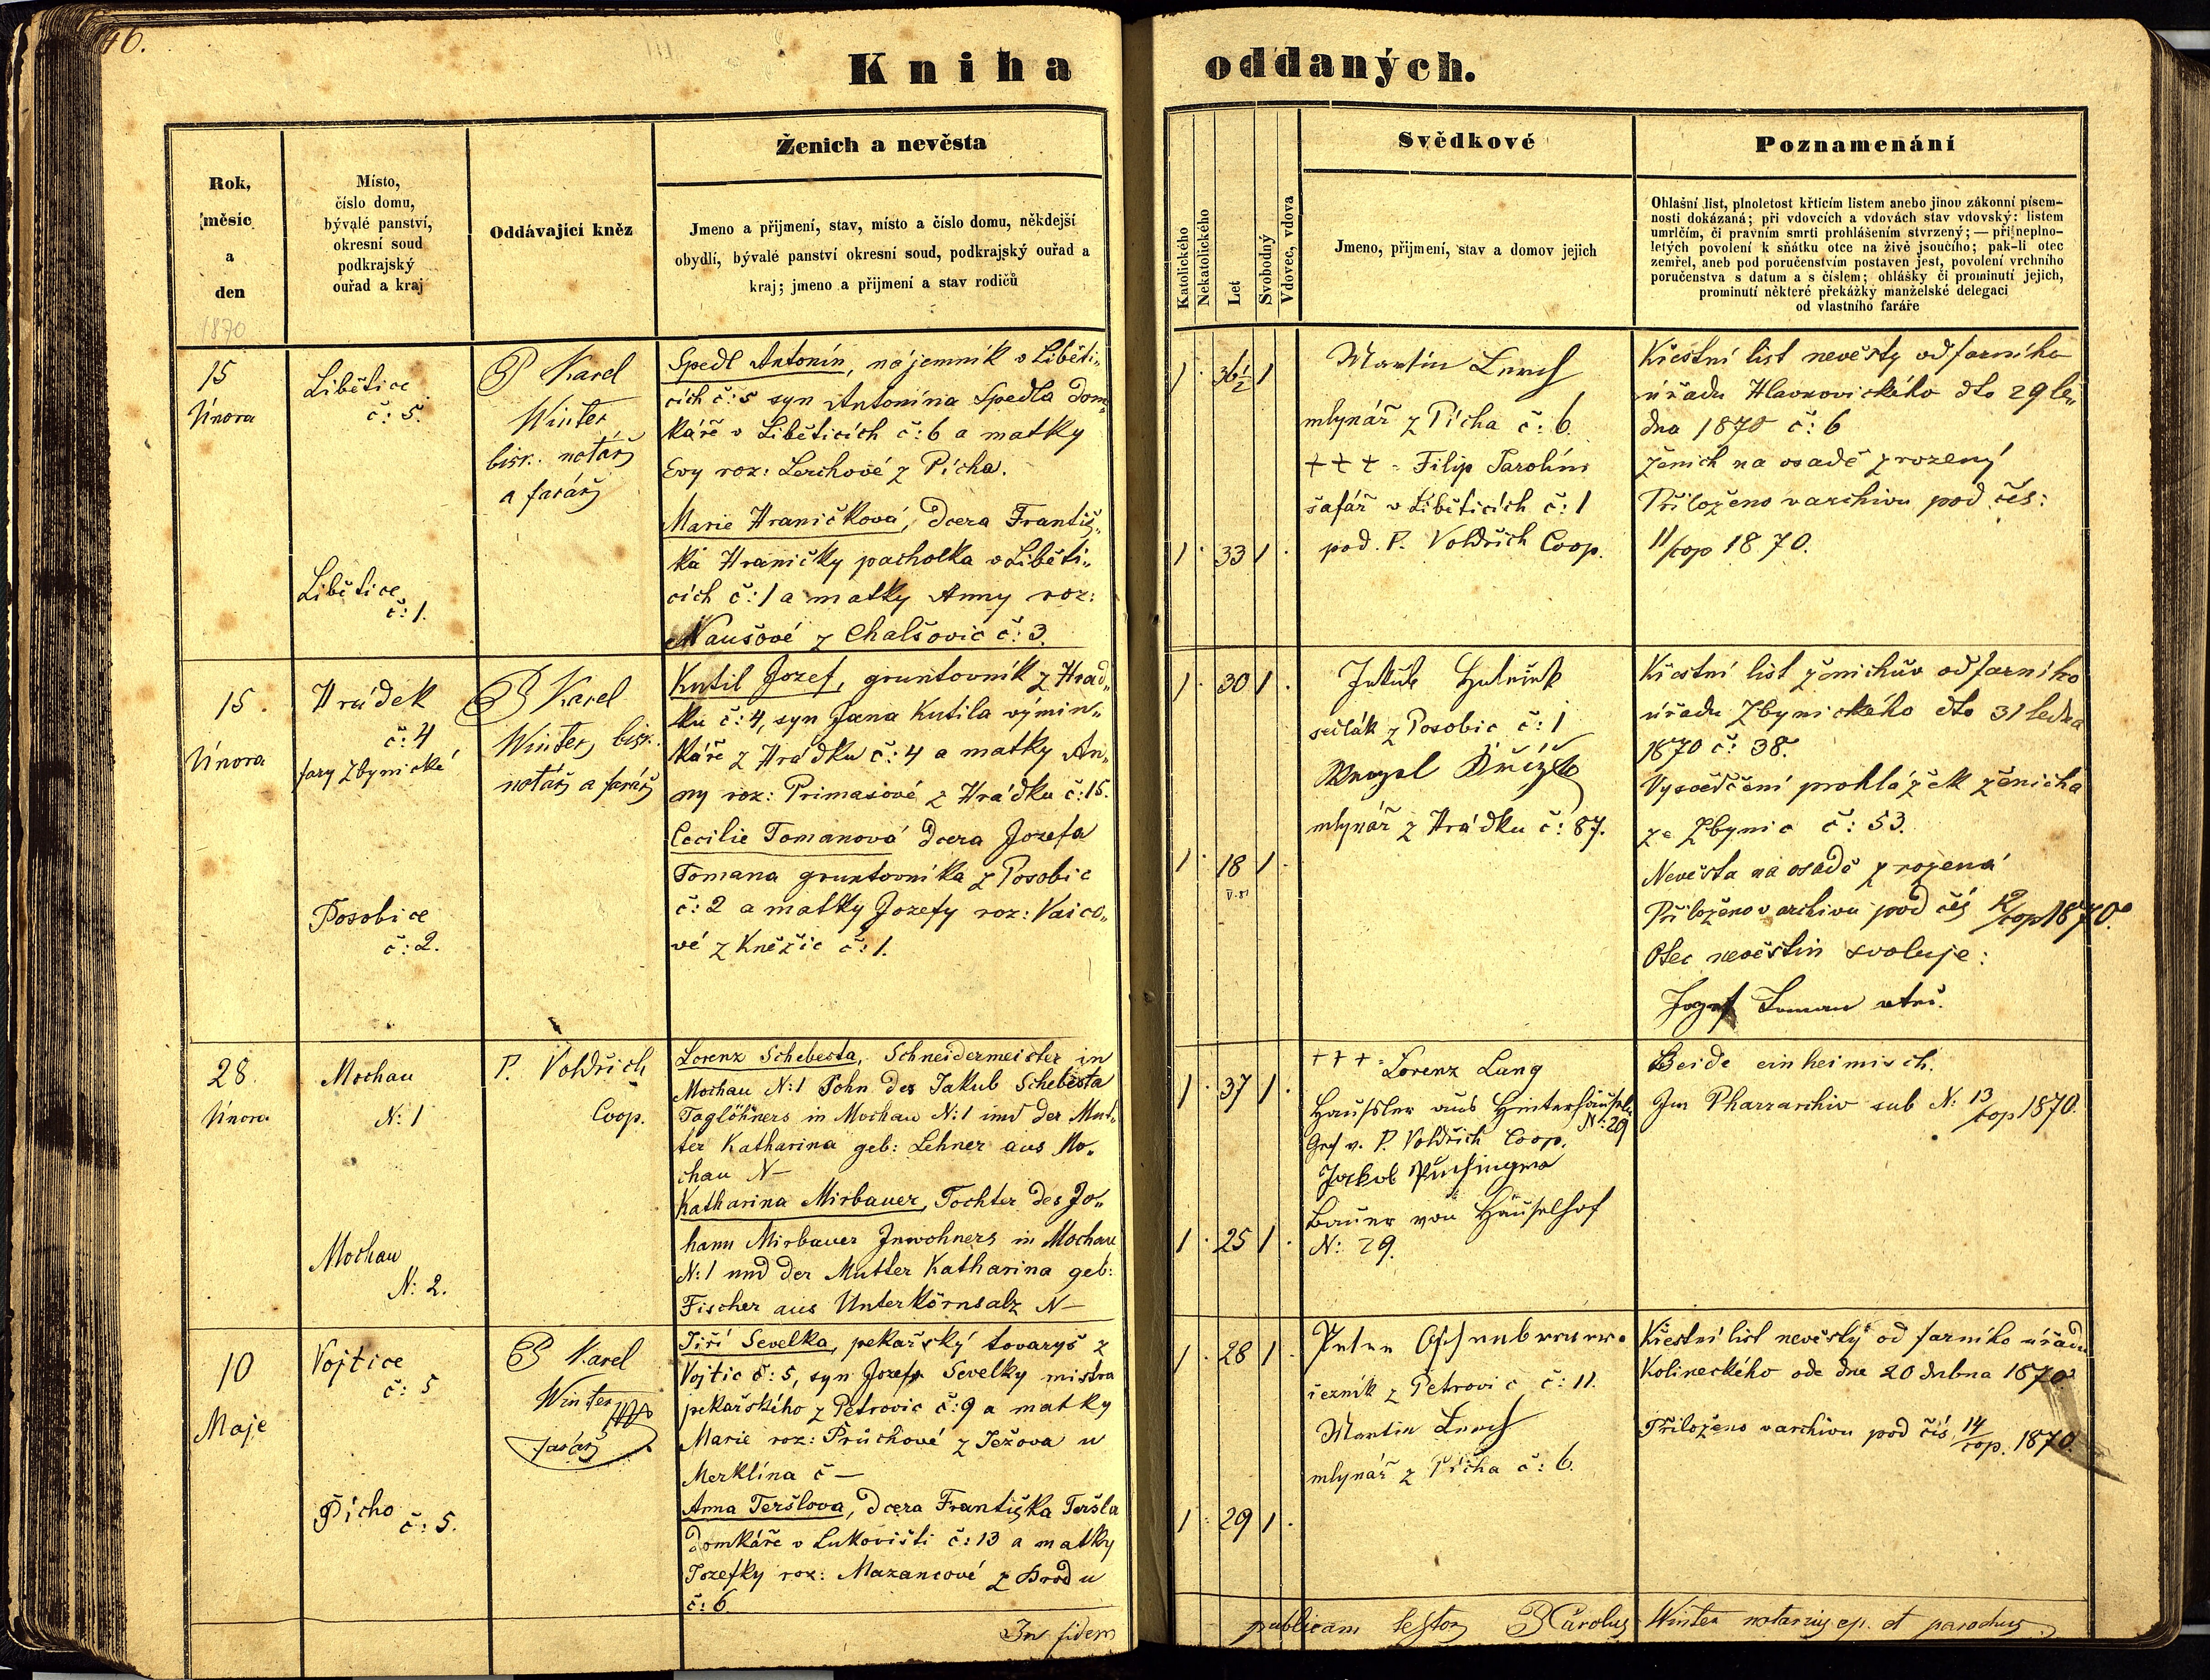 46.
Kniha oddaných.
Rok,
měsíc
a
den
1870
Místo,
číslo domu,
bývalé panství,
okresní soud
podkrajský
ouřad a kraj
Oddávající kněz
Ženich a nevěsta
Jmeno a přijmení, stav, místo a číslo domu, někdejší
obydlí, bývalé panství okresní soud, podkrajský ouřad a
kraj; jmeno a přijmení a stav rodičů
Katolického
Nekatolického
Let
Svobodný
Vdovec, vdova
Svědkové
Jmeno, přijmení, stav a domov jejich
Poznamenání
Ohlašní list, plnoletost křticím listem anebo jinou zákonní písem-
nosti dokázaná; při vdovcích a vdovách stav vdovský: listem
umrlčím, či pravním smrti prohlášením stvrzený; — při neplno-
letých povolení k sňátku otce na živě jsoucího; pak-li otec
zemřel, aneb pod poručenstvím postaven jest, povolení vrchního
poručenstva s datum a s číslem; ohlášky či prominutí jejich,
prominutí některé překážky manželské delegaci
od vlastního faráře
15
Února
Libětice
č: 5.
Libětice
č: 1.
P Karel
Winter
bisk. notář
a farář
Spedl Antonín, nájemník v Liběti„
cích č: 5 syn Antonína Spedla dom„
káře v Liběticích č: 6 a matky
Evy roz: Lerchové z Pícha.
Marie Hraničková, dcera Františ„
ka Hraničky pacholka v Liběti„
cích č: 1 a matky Anny roz:
Naušové z Chalšovic č: 3.
1 . 36½ 1
1 . 33 1 .
Martin Lerch
mlynář z Pícha č: 6.
+++ = Filip Parolím
šafář v Liběticích č: 1
pod. P. Voldřich Coop.
Křestní list nevěsty od farního
úřadu Hlavnovického dto 29 le„
dna 1870 č: 6
ženich na osadě zrozený
Přiloženo v archivu pod čís:
11/cop 1870.
15.
Února
Hrádek
č: 4
fary Zbynické
Posobice
č: 2.
P Karel
Winter, bisk.
notář a farář
Kutil Jozef, gruntovník z Hrád„
ku č: 4, syn Jana Kutila výmin„
káře z Hrádku č: 4 a matky An„
ny roz: Primasové z Hrádku č: 15.
Cecilie Tomanová dcera Jozefa
Tomana gruntovníka z Posobic
č: 2 a matky Jozefy roz: Vaico„
vé z Kněžic č: 1.
1 . 30 1 .
1 . 18 1 .
sedlák z Posobic č: 1
mlynář z Hrádku č: 87.
Křestní list ženichův od farního
úřadu Zbynického dto 31 ledna
1870 č: 38.
Vysvědčení prohlážek ženicha
ze Zbynic č: 53.
Nevěsta na osadě zrozená
Přiloženo v archivu pod čís 12/cop 1870.
Otec nevěstin svoluje:
Jozef Toman
28.
Února
Mochau
N: 1
Mochau
N: 2.
P. Voldřich
Coop.
Lorenz Schebesta, Schneidermeister in
Mochau N: 1 Sohn des Jakub Schebesta
Taglöhners in Mochau N: 1 und der Mut„
ter Katharina geb: Lehner aus Mo„
chau N —
Katharina Mirbauer, Tochter des Jo„
hann Mirbauer Inwohners in Mochau
N: 1 und der Mutter Katharina geb:
Fischer aus Unterkörnsalz N —
1 . 37 1 .
1 . 25 1 .
+++ = Lorenz Lang
Häusler aus Hinterhäuseln
N: 29
Gef v. P. Voldřich Coop.
Jakob
Bauer von Häuselhof
N: 29.
Beide einheimisch.
Im Pharrarchiv sub N: 13/cop 1870.
10
Maje
Vojtice
č: 5
Pícho č: 5.
P Karel
Winter
farář
Jiří Sevelka, pekařský tovaryš z
Vojtic č: 5, syn Jozefa Sevelky mistra
pekařského z Petrovic č: 9 a matky
Marie roz: Průchové z Ježova u
Merklína č —
Anna Teršlova, dcera Františka Teršla
domkáře v Lukovišti č: 13 a matky
Jozefky roz: Mazancové z Brodu
č: 6.
1 . 28 1 .
1 . 29 1 .
Peter
řezník z Petrovic č: 11.
Martin Lerch
mlynář z Pícha č: 6.
Křestní list nevěsty od farního úřadu
Kolineckého ode dne 20 dubna 1870.
Přiloženo v archivu pod čís 14/cop. 1870.
In fidem
publicam testor P Carolus Winter notarius ep. et parochus